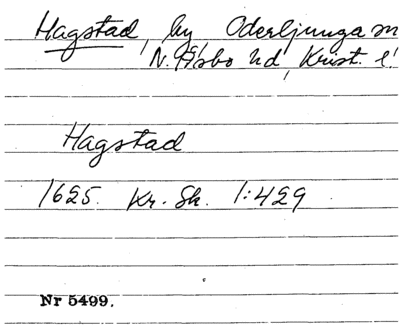 Hagstad, by, Oderljunga sn
N. Åsbo hd, Krist. l.
Hagstad
1625. Kr. Sk. 1:429
Nr 5499.